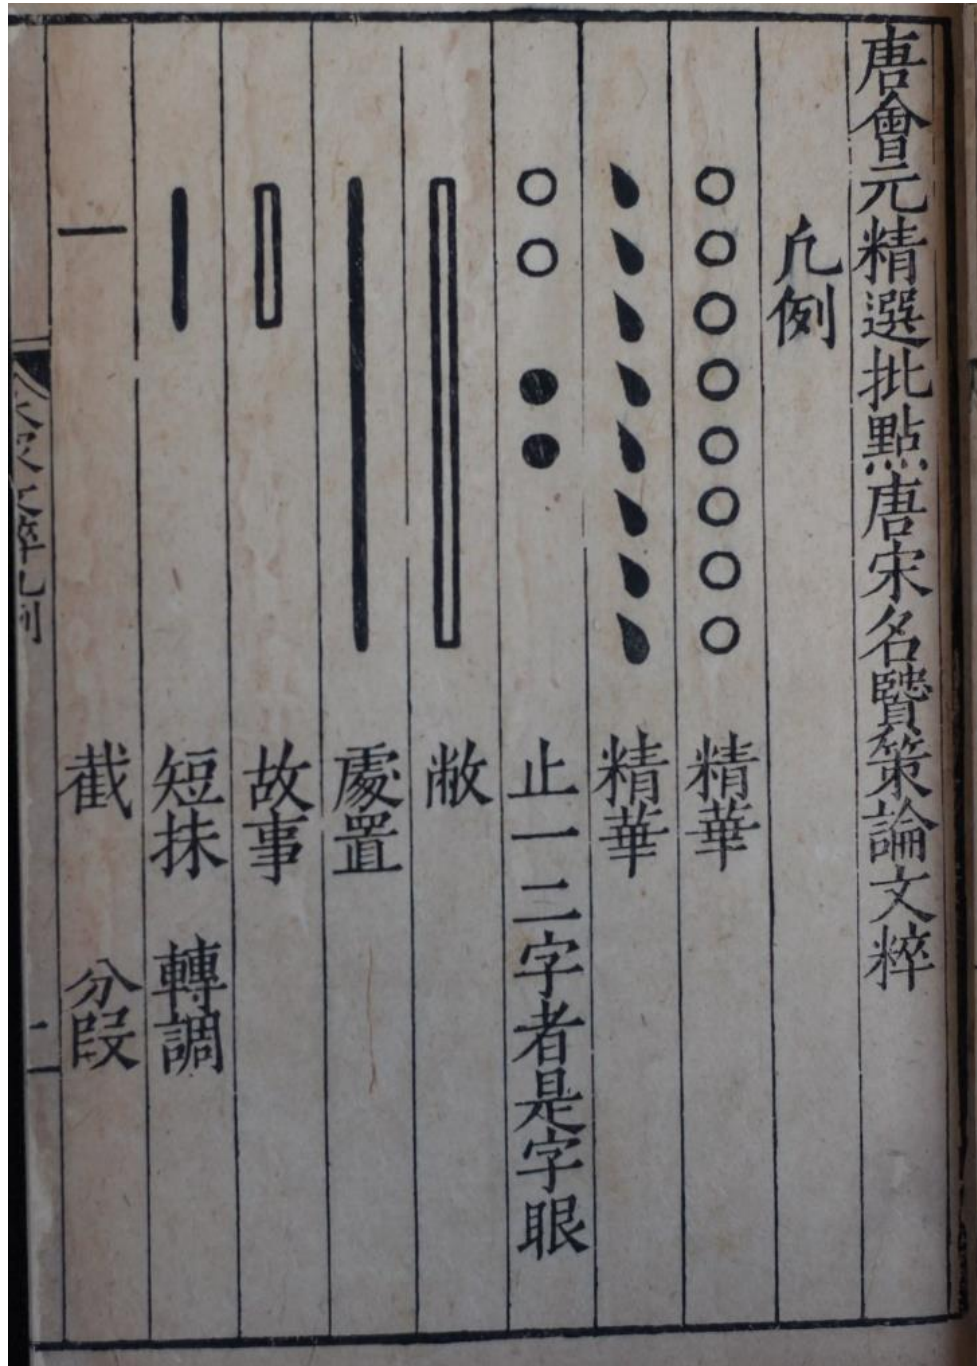 唐會元精選批點唐宋名賢策論文粹
凡例
精華
精華
止一二字者是字眼
敝
處置
故事
短抹 轉調
截 分段
文粹凡例 二